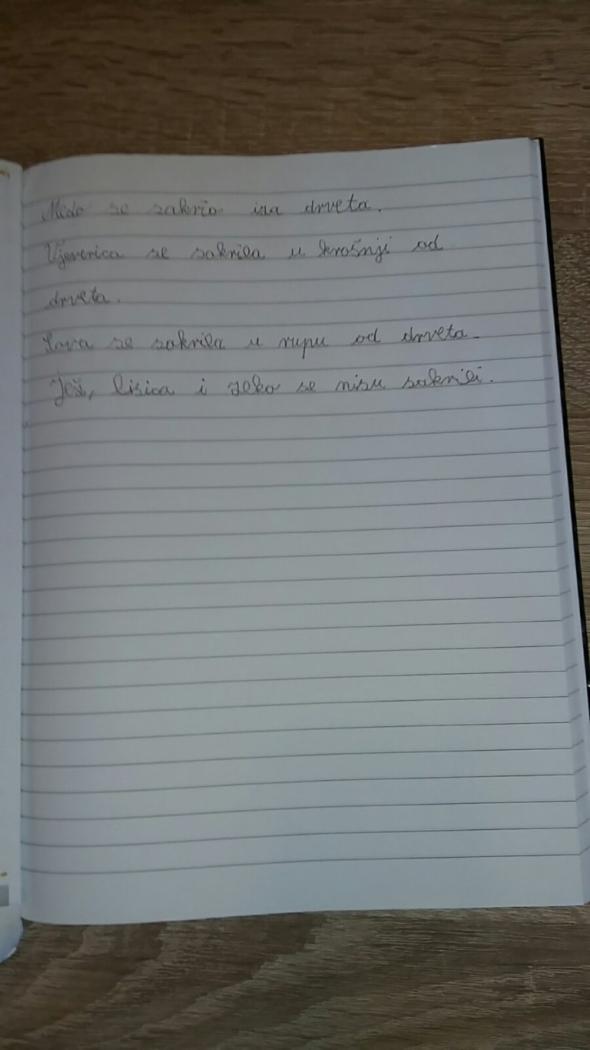 Medo se sakrio iza drveta.
Vjeverica se sakrila u krošnji od
drveta.
Sova se sakrila u rupu od drveta.
Jež, lisica i zeko se nisu sakrili.